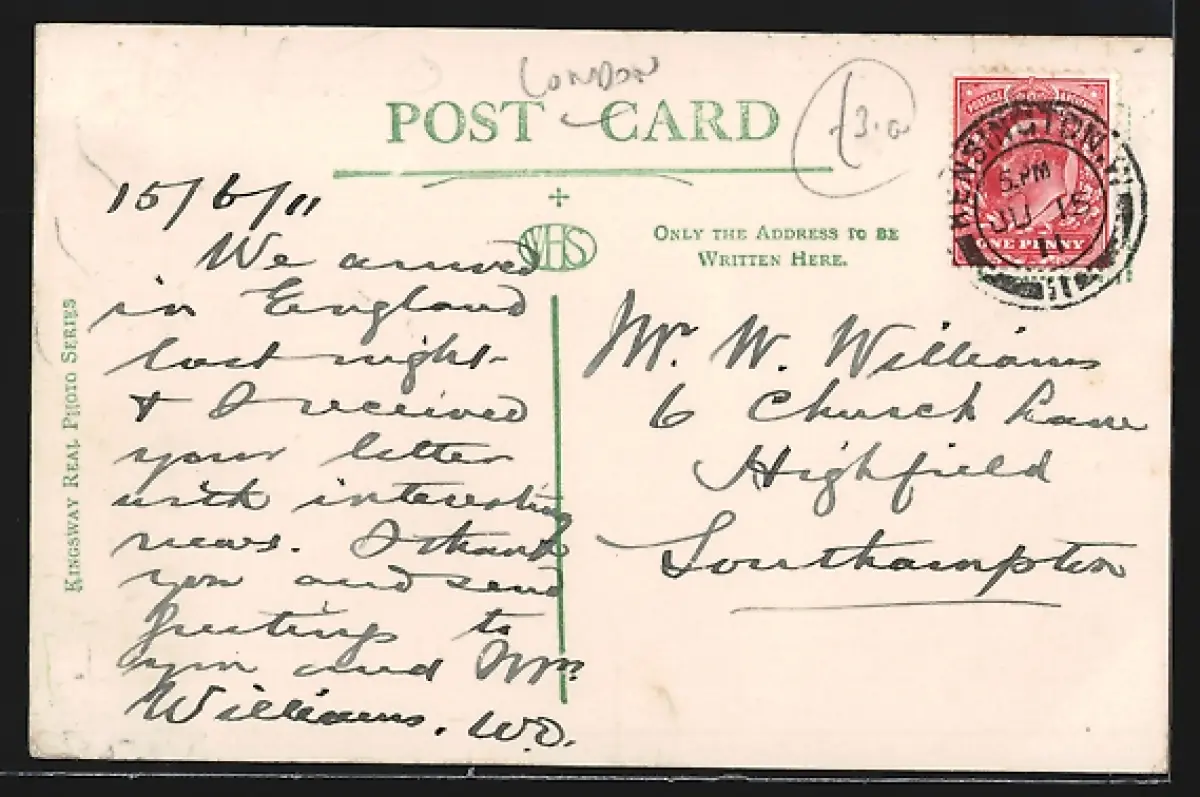 London
POST CARD
13.0
15/6/11
WHS
ONLY THE ADDRESS TO BE
WRITTEN HERE.
POSTAGE
ONE PENNY
KENSINGTON.
5. PM
JU 15
11
KINGSWAY REAL PHOTO SERIES
We arrived
in England
last night
& I received
your letter
with interesting
news. I thank
you and send
greetings to
you and Mrs
Williams. W.D.
Mr. W. Williams
6 Church Lane
Highfield
Southampton